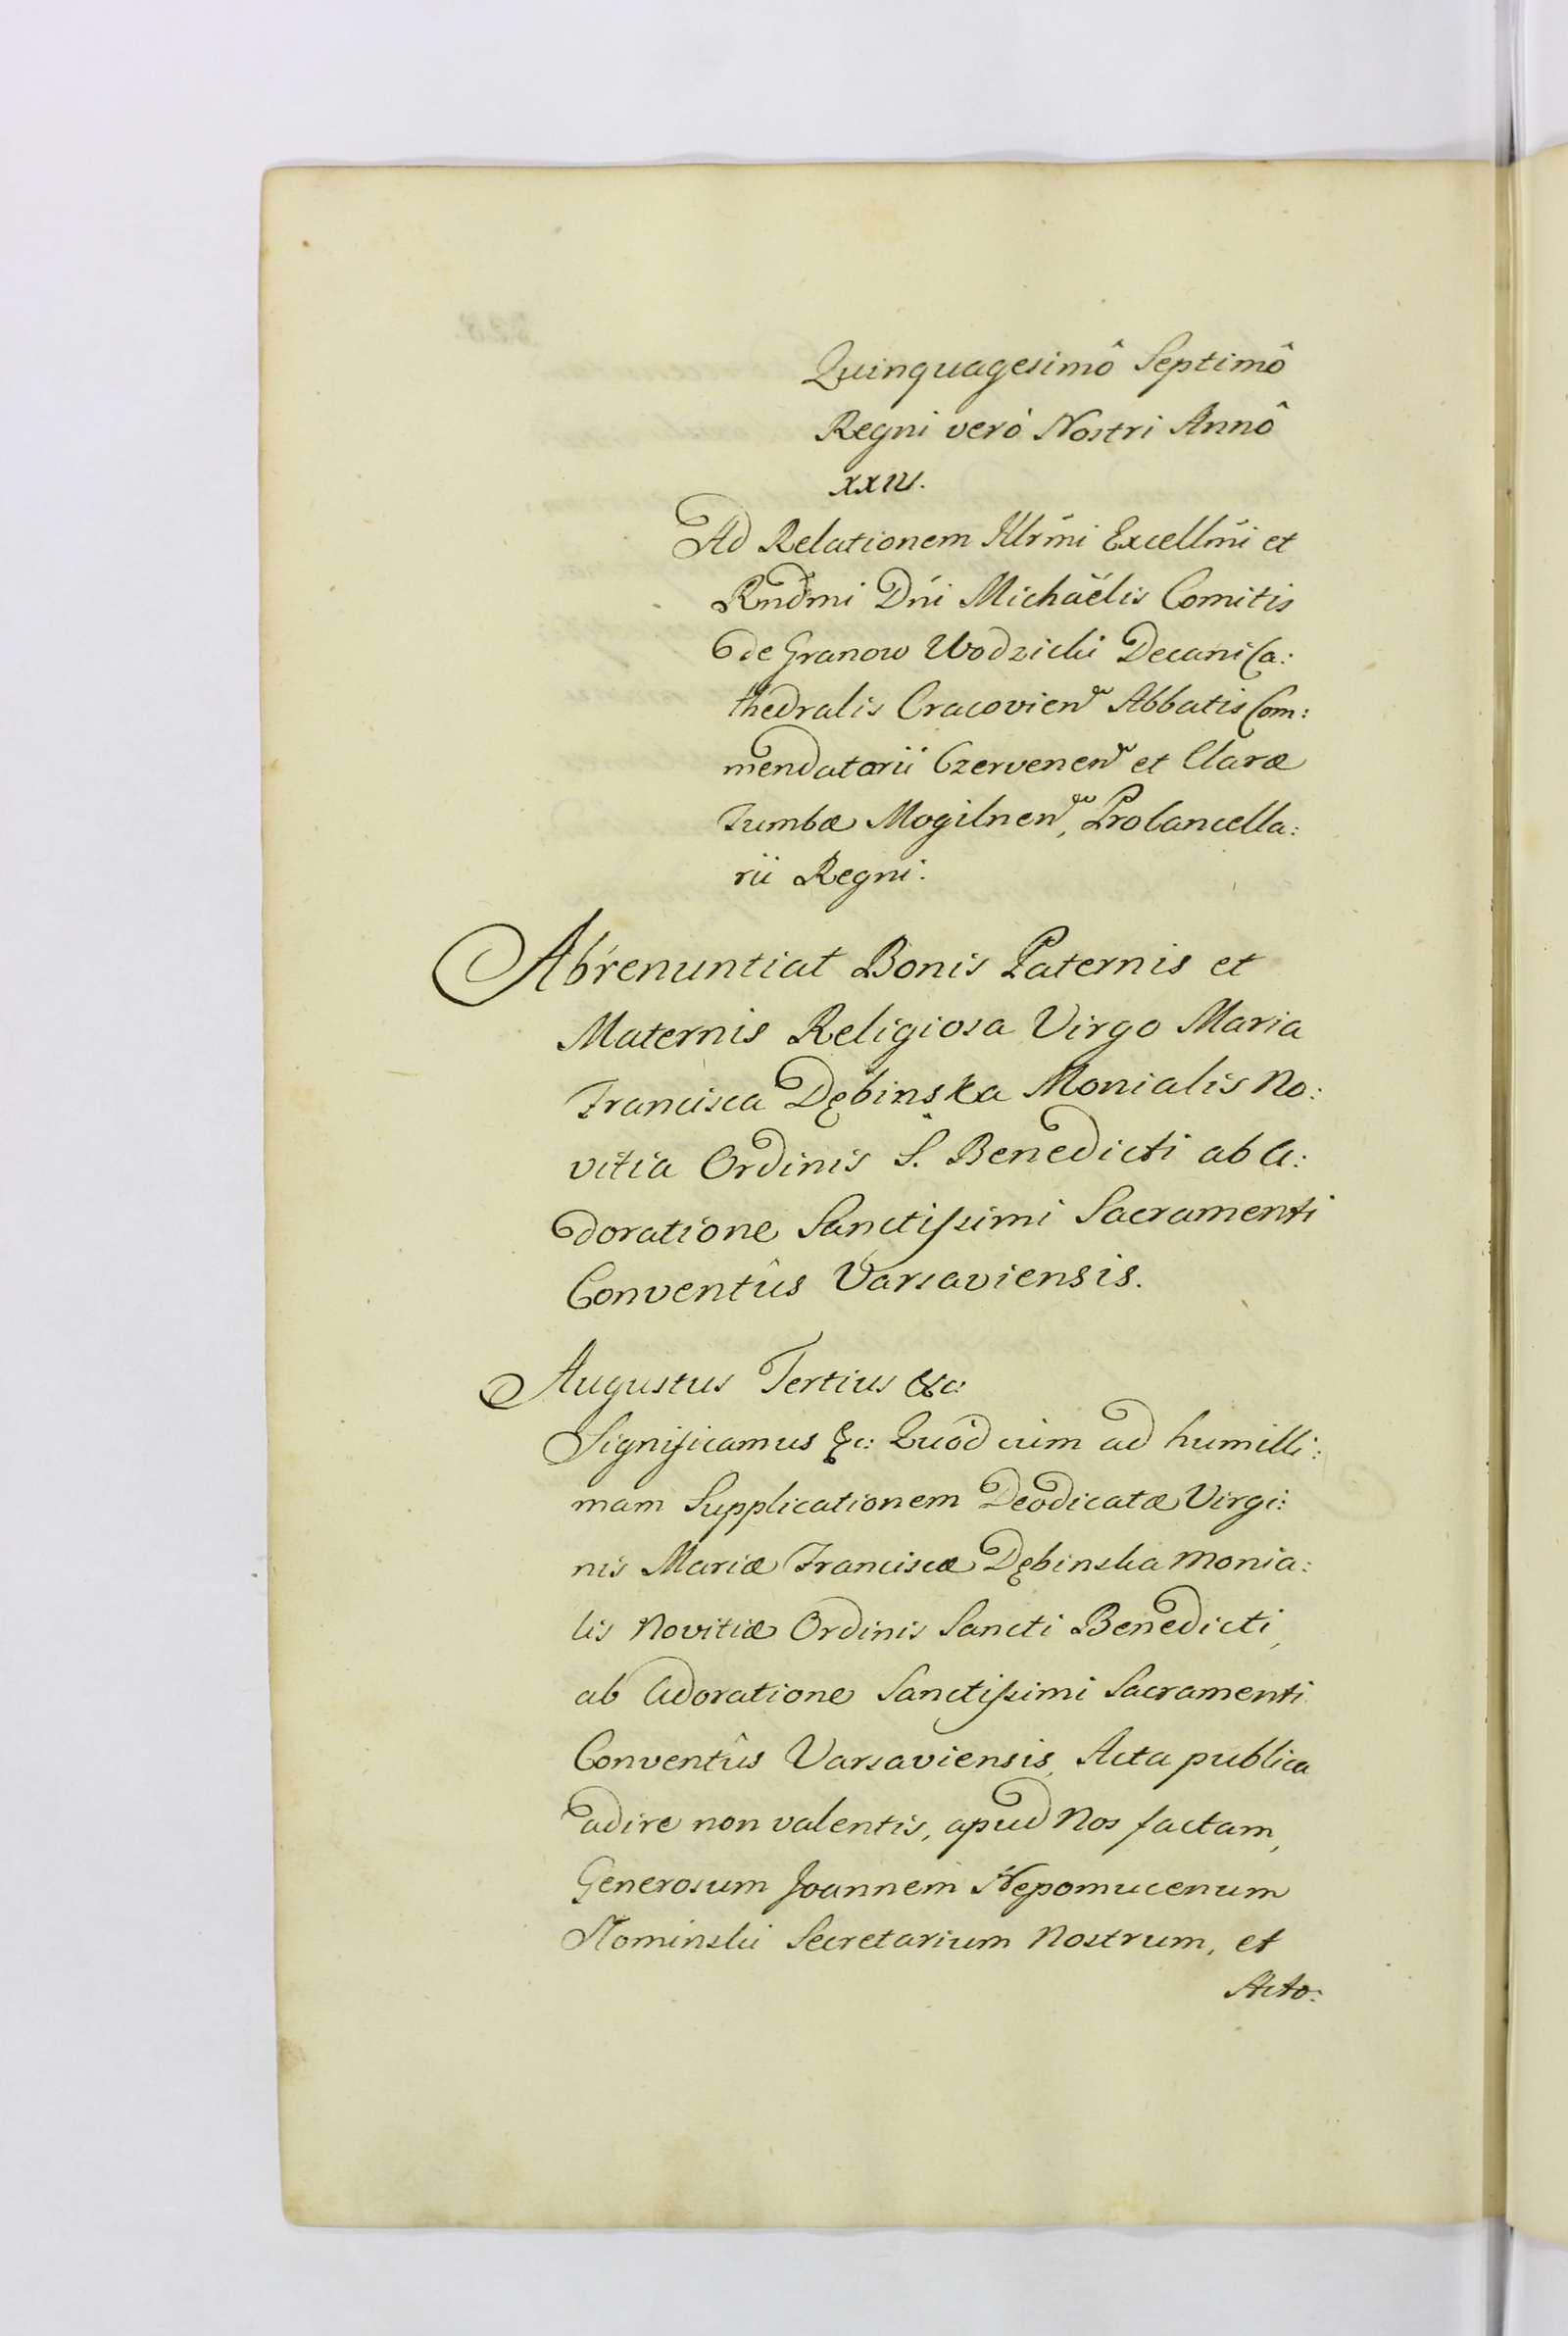 Quinquagesimô Septimô
Regni verò Nostri Annô
XXIV.
Ad Relationem Illrmi Excellmi et
Rndmi Dni Michaëlis Comitis
de Granow Wodzicki Decani Ca:
thedralis Cracovien Abbatis Com:
mendatarii Czervenen et Claræ
Tumbæ Mogilnen, ProCancella:
rii Regni.
Abrenuntiat Bonis Paternis et
Maternis Religiosa Virgo Maria
Francisca Dębinska Monialis No:
vitia Ordinis S. Benedicti ab A:
doratione Sanctissimi Sacramenti
Conventûs Varsaviensis.
Augustus Tertius &c:
Significamus &c: Quòd cùm ad humilli:
mam Supplicationem Deodicatæ Virgi:
nis Mariæ Franciscæ Dębinska Monia:
lis Novitiæ Ordinis Sancti Benedicti,
ab Adoratione Sanctissimi Sacramenti
Conventûs Varsaviensis, Acta publica
adire non valentis, apud Nos factam,
Generosum Joannem Nepomucenum
Slominski Secretarium Nostrum, et
Acto: